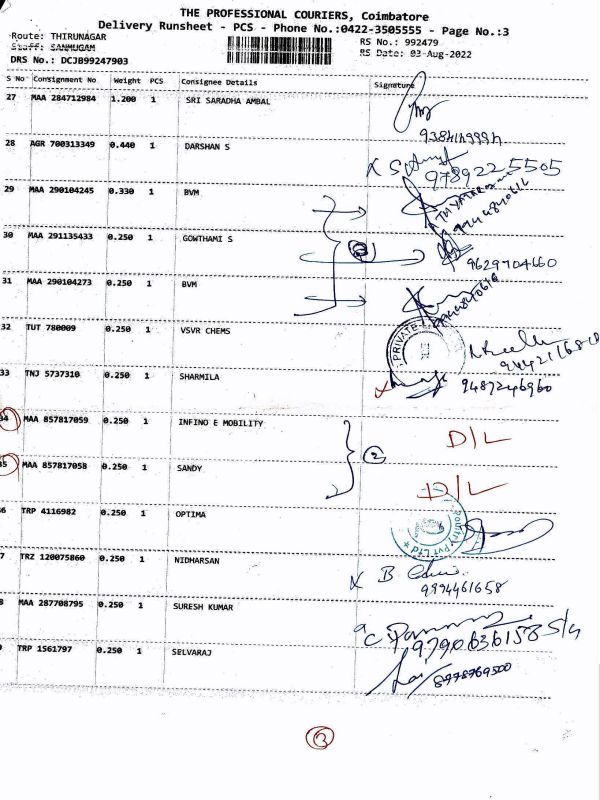 THE PROFESSIONAL COURIERS, Coimbatore
Delivery Runsheet - PCS - Phone No.:0422-3505555 - Page No.:3
Route: THIRUNAGAR
RS No.: 992479
Staff: SANMUGAM
RS Date: 03-Aug-2022
DRS No.: DCJB99247903
S No Consignment No Weight PCS Consignee Details Signature
27 MAA 284712984 1.200 1 SRI SARADHA AMBAL
28 AGR 700313349 0.440 1 DARSHAN S
979922 5505
29 MAA 290104245 0.330 1 BVM
30 MAA 291135433 0.250 1 GOWTHAMI S
9629704660
31 MAA 290104273 0.250 1 BVM
32 TUT 780009 0.250 1 VSVR CHEMS
PRIVATE
33 TNJ 5737310 0.250 1 SHARMILA
9487246960
34 MAA 857817059 0.250 1 INFINO E MOBILITY
D/L
2
35 MAA 857817058 0.250 1 SANDY
D/L
6 TRP 4116982 0.250 1 OPTIMA
Pvt Ltd
7 TRZ 120075860 0.250 1 NIDHARSAN
9994461658
8 MAA 287708795 0.250 1 SURESH KUMAR
9790636158 S/g
TRP 1561797 0.250 1 SELVARAJ
8978769500